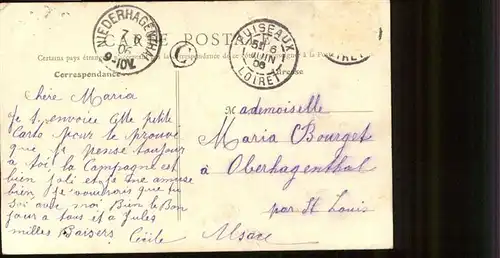 CARTE POSTALE
Certains pays étrangers
Correspondance
Adresse
NIEDERHAGENTHAL
7 6 06
9-10V.
C
PUISEAUX
5E 6
JUIN
06
LOIRET
LOIRET
Chère Maria
Je t'envoie cette petite
Carte pour te prouvé
que je pense toujour
a toi la Campagne est
bien joli et je me amuse
bien je voudrais que tu
soi avec moi Bien le Bon
jour a tous et a Jules
milles Baisers Cécile
Mademoiselle
Maria Bourget
à Oberhagenthal
par St Louis
Alsace